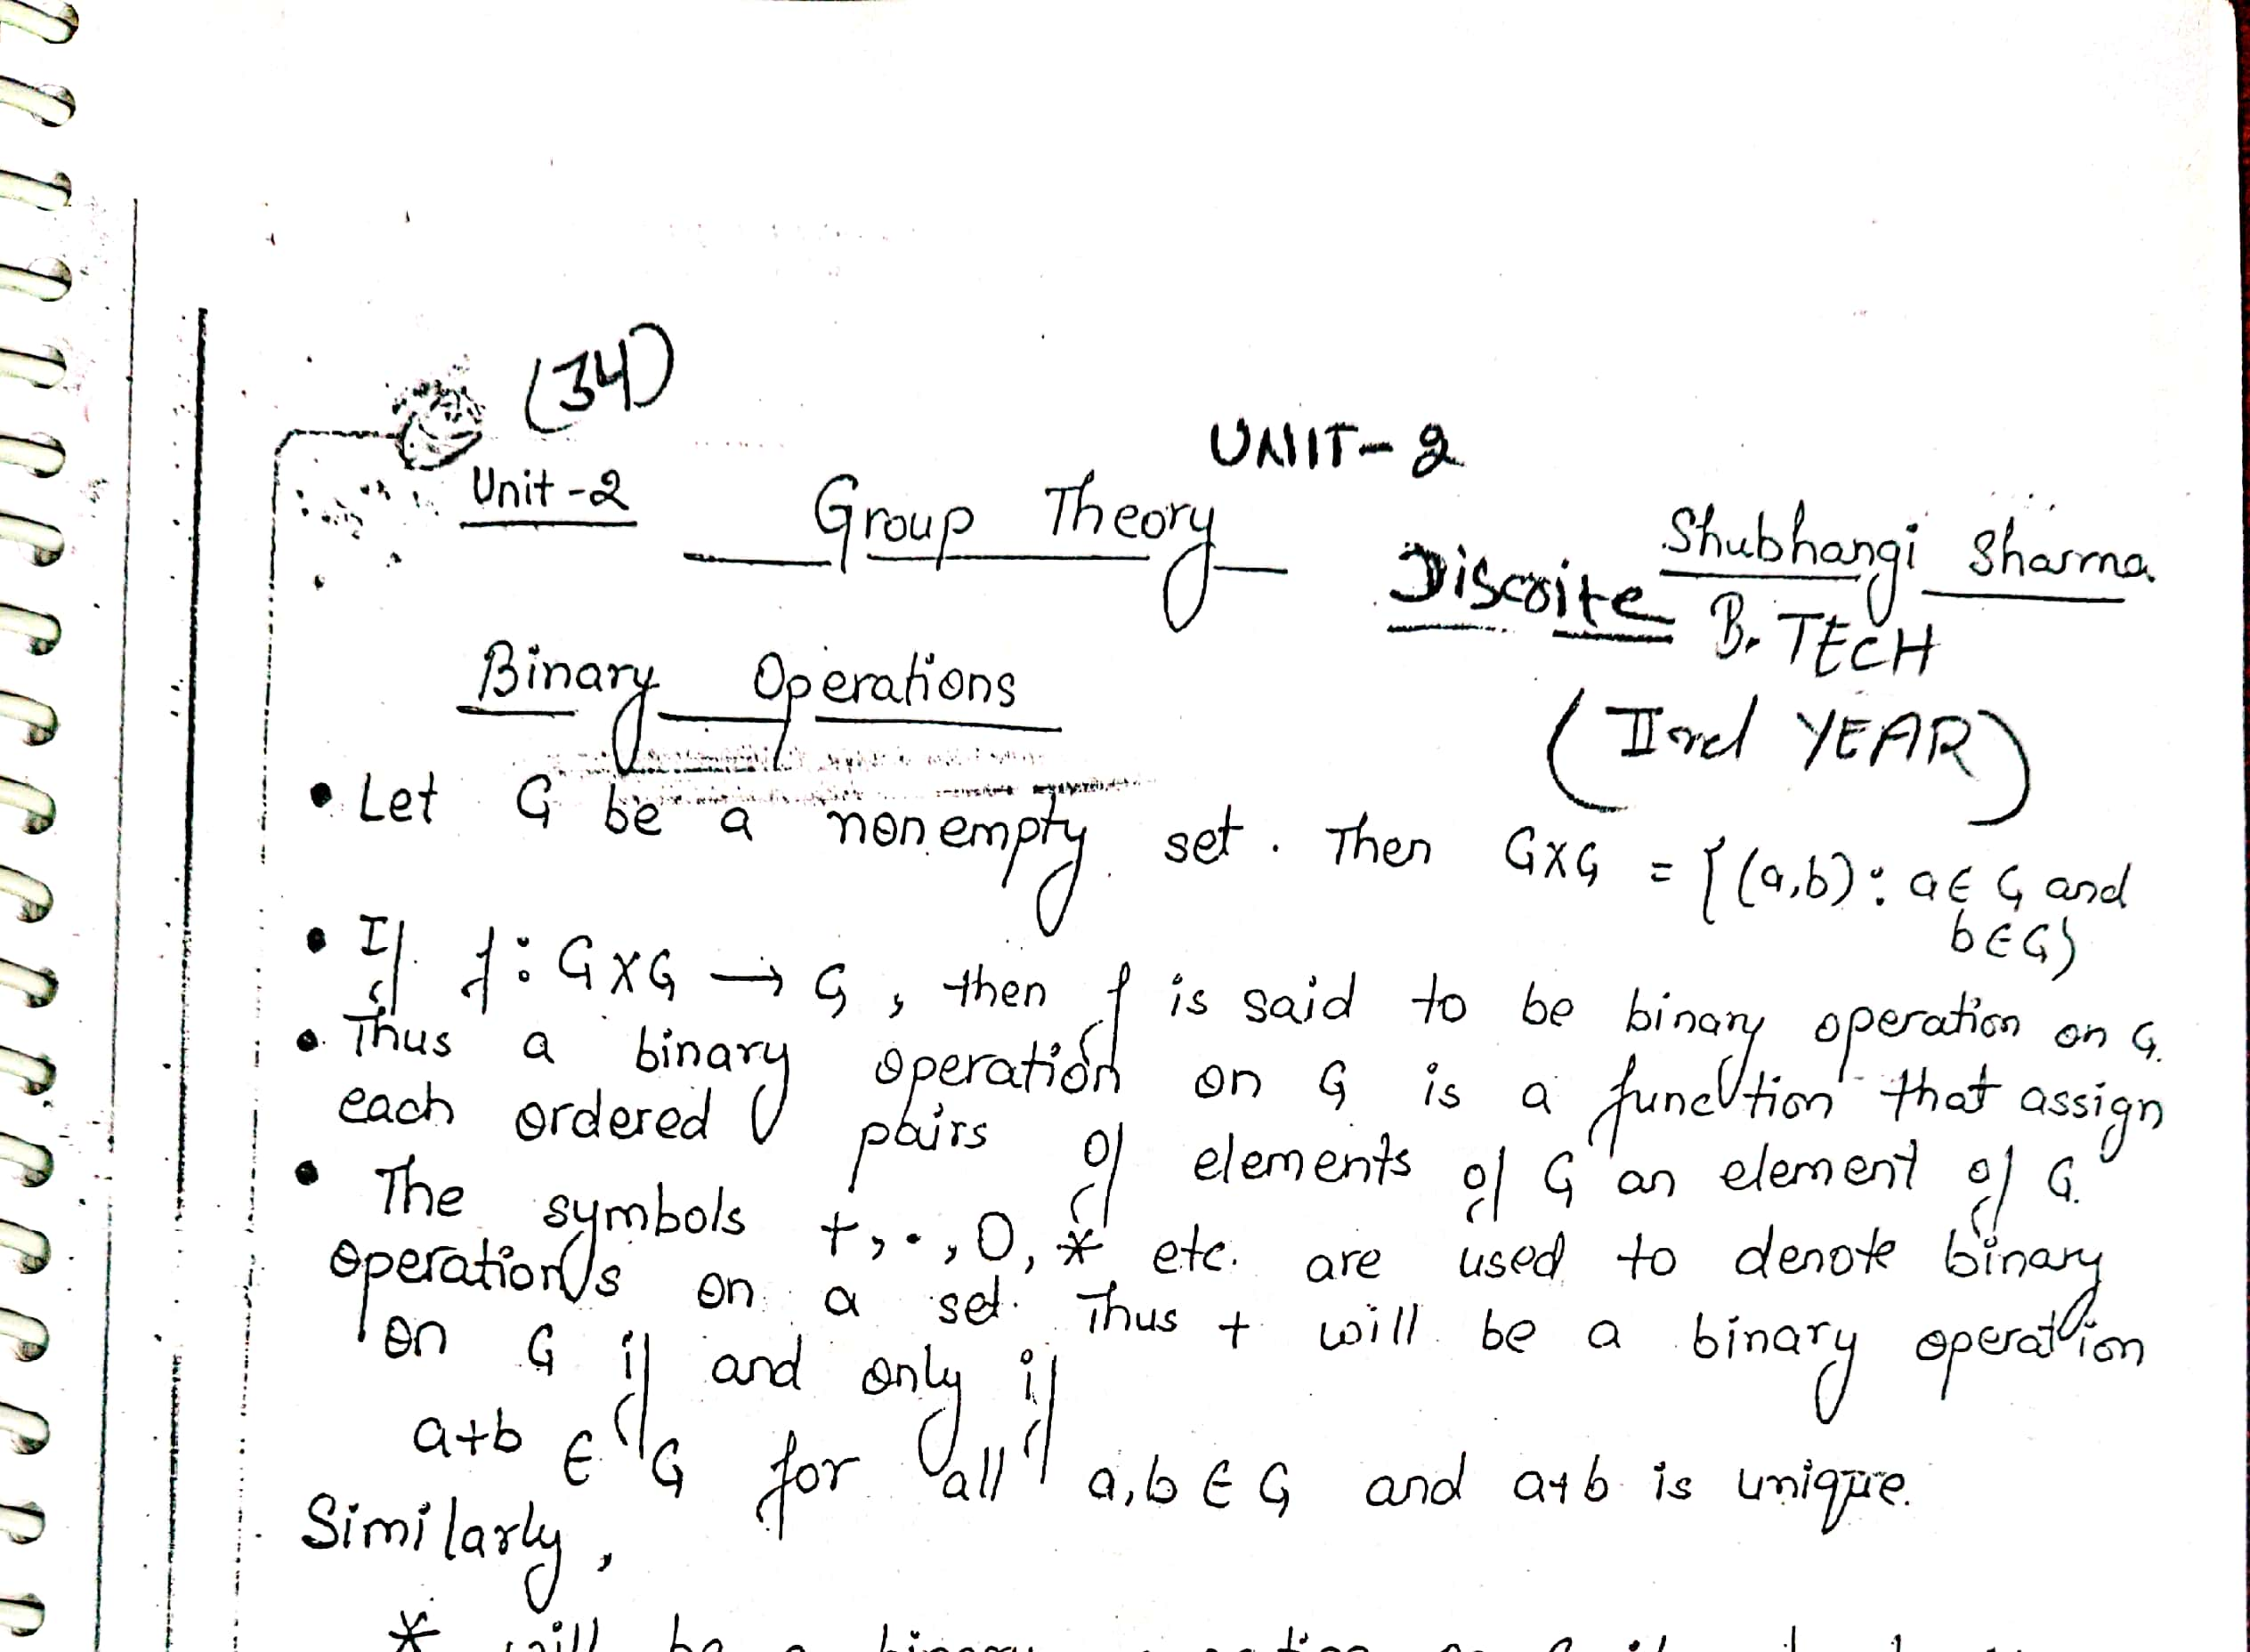 (34)
UNIT-2
Unit-2 Group Theory
Shubhangi Sharma
Discrite
B.TECH
(IInd YEAR)
Binary Operations
• Let G be a nonempty set. Then G×G = {(a,b): a∈G and
b∈G}
• If f: G×G → G, then f is said to be binary operation on G.
• Thus a binary operation on G is a function that assign
each ordered pairs of elements of G an element of G.
• The symbols +, ·, O, * etc. are used to denote binary
operations on a set. Thus + will be a binary operation
on G if and only if
a+b ∈ G for all a,b ∈ G and a+b is unique.
Similarly,
* will be a binary